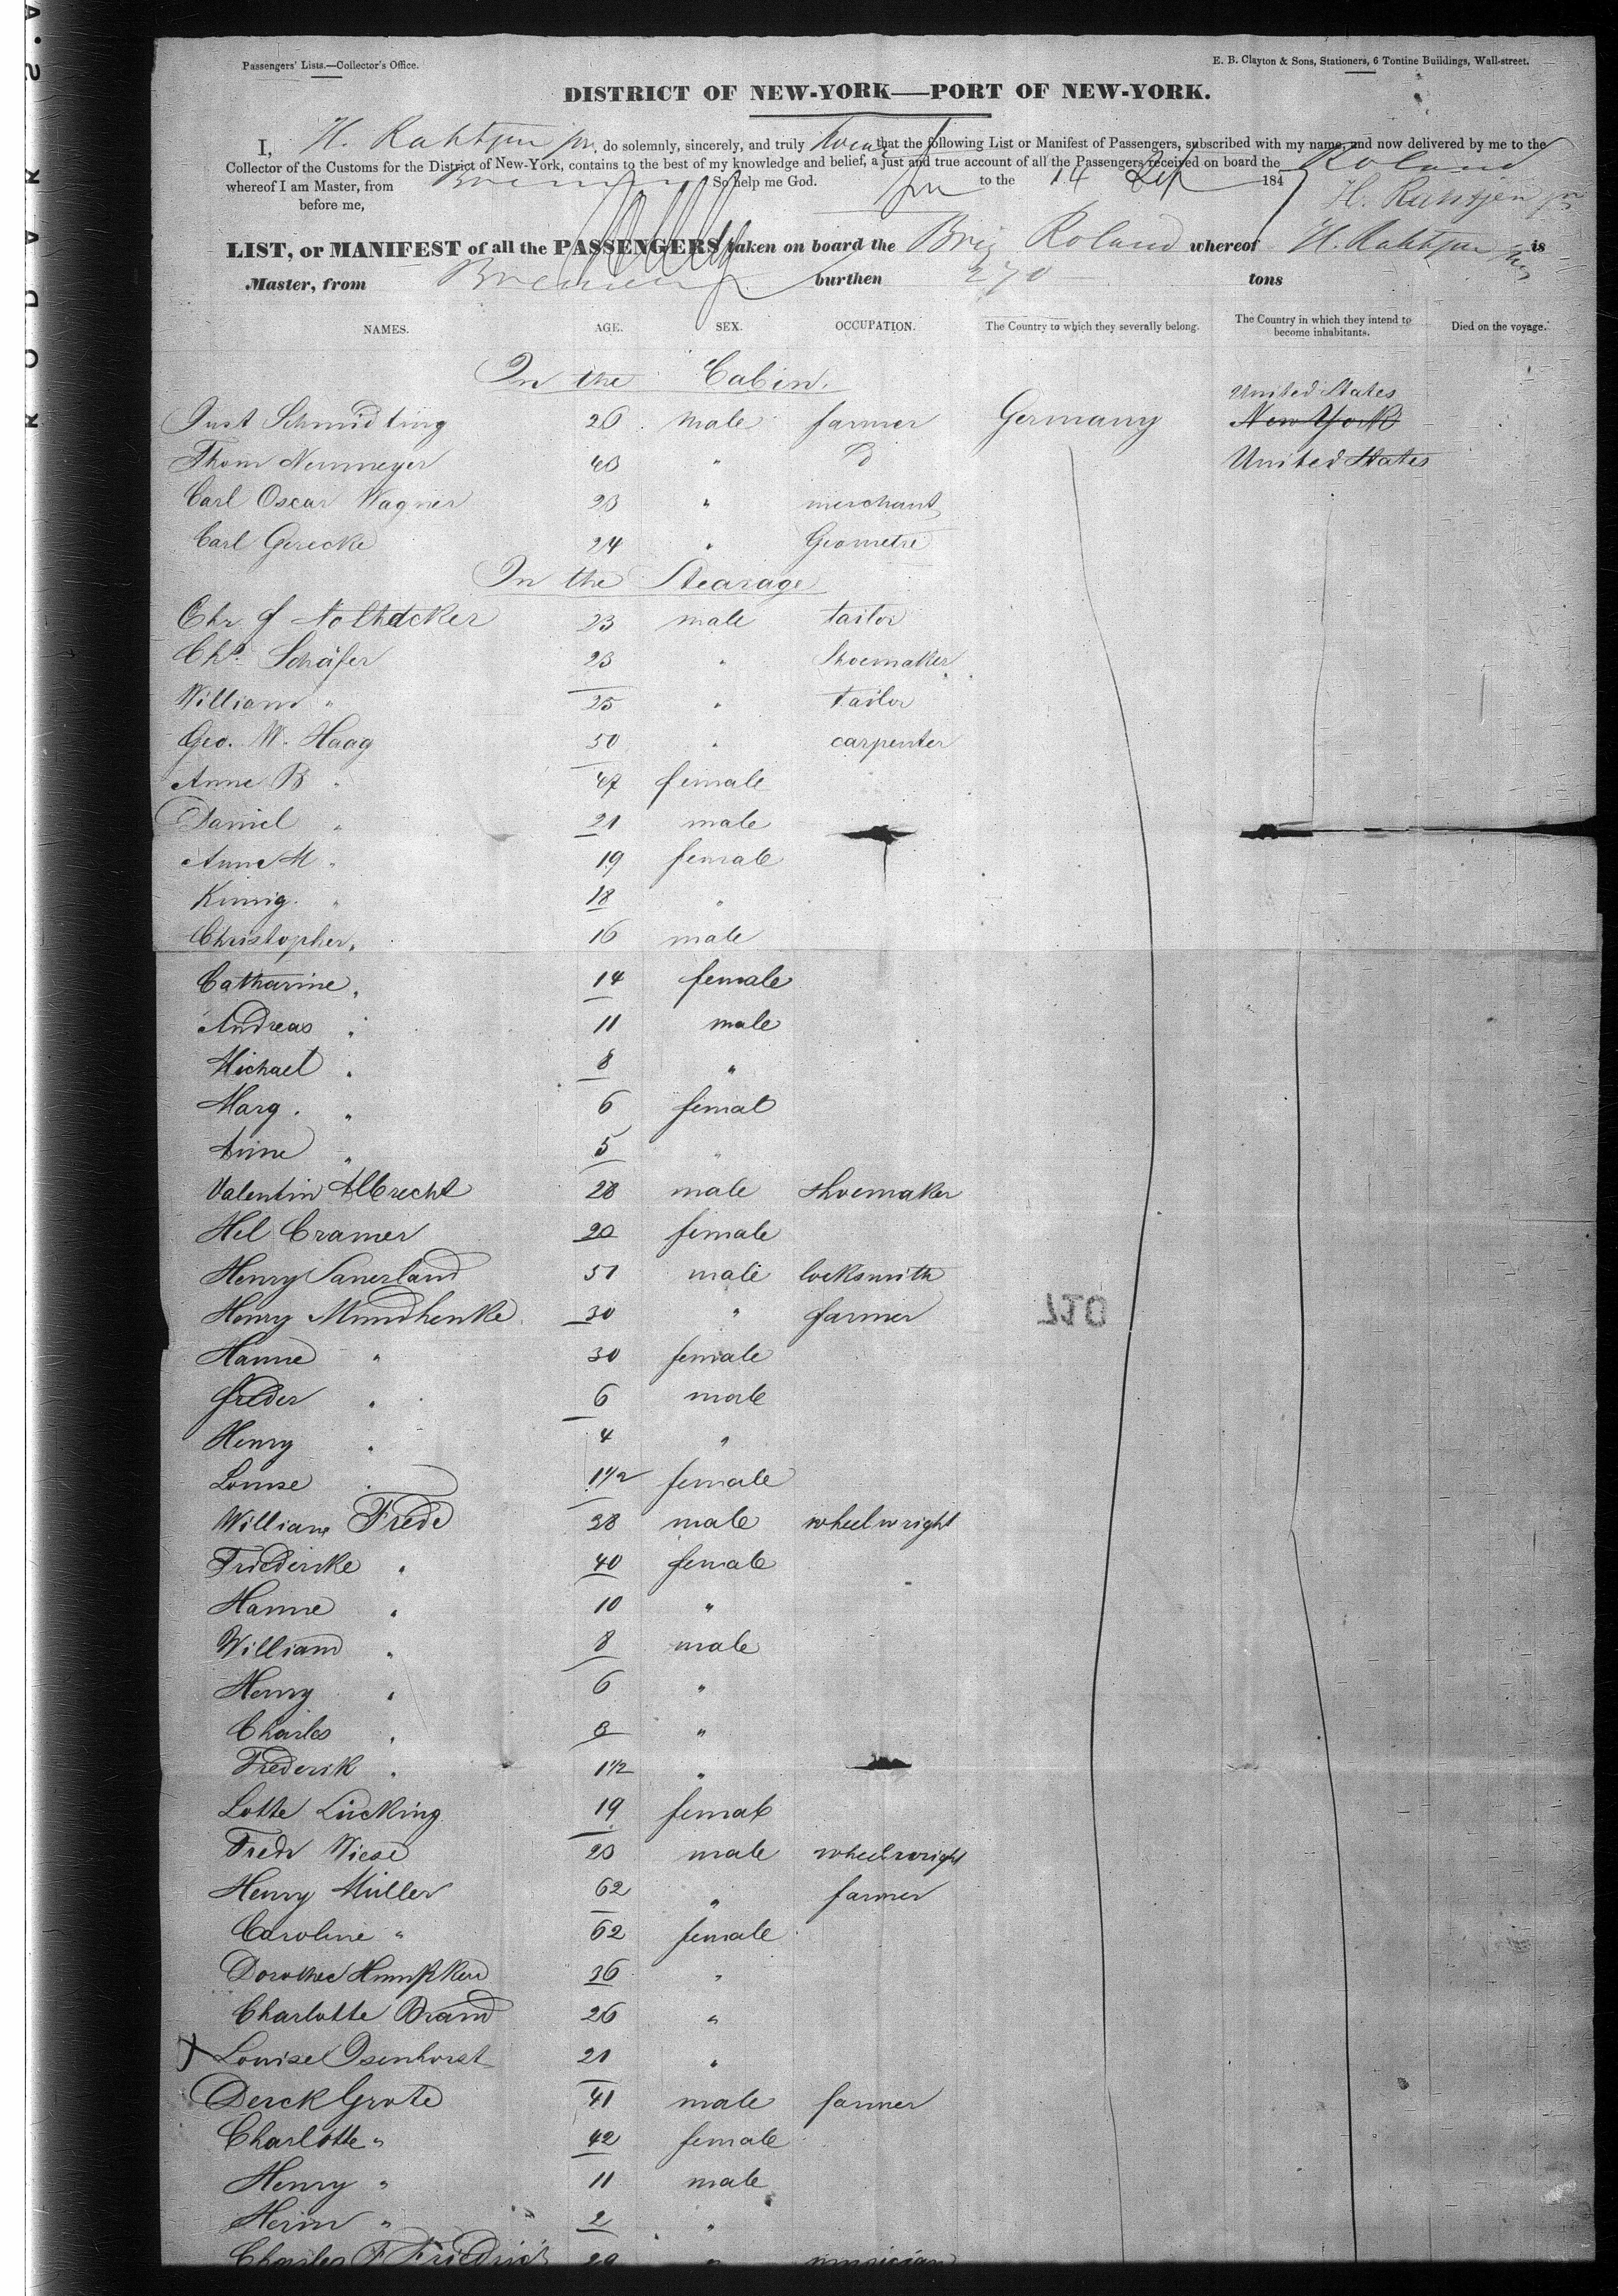 Passengers' Lists.—Collector's Office.
E. B. Clayton & Sons, Stationers, 6 Tontine Buildings, Wall-street.
DISTRICT OF NEW-YORK—PORT OF NEW-YORK.
I, H. Rahtjen jr. do solemnly, sincerely, and truly swear that the following List or Manifest of Passengers, subscribed with my name, and now delivered by me to the
Collector of the Customs for the District of New-York, contains to the best of my knowledge and belief, a just and true account of all the Passengers received on board the Roland
whereof I am Master, from Bremen So help me God. to the 14 Sep 1847
H. Rahtjen jr
before me,
LIST, or MANIFEST of all the PASSENGERS taken on board the Brig Roland whereof H. Rahtjen jr is
Master, from Bremen burthen 270 tons
NAMES. AGE. SEX. OCCUPATION. The Country to which they severally belong. The Country in which they intend to become inhabitants. Died on the voyage.
In the Cabin.
United States
Just Schmidting 26 male farmer Germany New York
Thom Nenmeyer 43 " D United States
Carl Oscar Wagner 23 " merchant
Carl Gerecke 24 " Geometre
In the Stearage
Chr. f 23 male tailor
Chs. Schäfer 23 " Shoemaker
William " 25 " tailor
Geo. W. Haag 50 " carpenter
Anne B " 47 female
Daniel " 21 male
Anne M " 19 female
Kunig. " 18 "
Christopher " 16 male
Catharine " 14 female
Andreas " 11 male
Michael " 8 "
Marg. " 6 femal
Anne " 5 "
Valentin Albrecht 28 male shoemaker
Hel Cramer 20 female
Henry Sanerland 51 male locksmith
Henry Mundhenke 30 " farmer
710
Hanne " 30 female
freder " 6 male
Henry " 4 "
Louise " 1 1/2 female
William Frede 38 male wheelwright
Friedericke " 40 female
Hanne " 10 "
William " 8 male
Henry " 6 "
Charles " 3 "
Frederik " 1 1/2 "
Lotte Lücking 19 female
Fredr Wiese 23 male wheelwright
Henry Müller 62 " farmer
Caroline " 62 female
Dorothee 36 "
Charlotte Brand 26 "
x Louise Isenhorst 21 "
Derck Grote 41 male farmer
Charlotte " 42 female
Henry " 11 male
Herm " 2 "
Charles F Friedrich 29 " musician